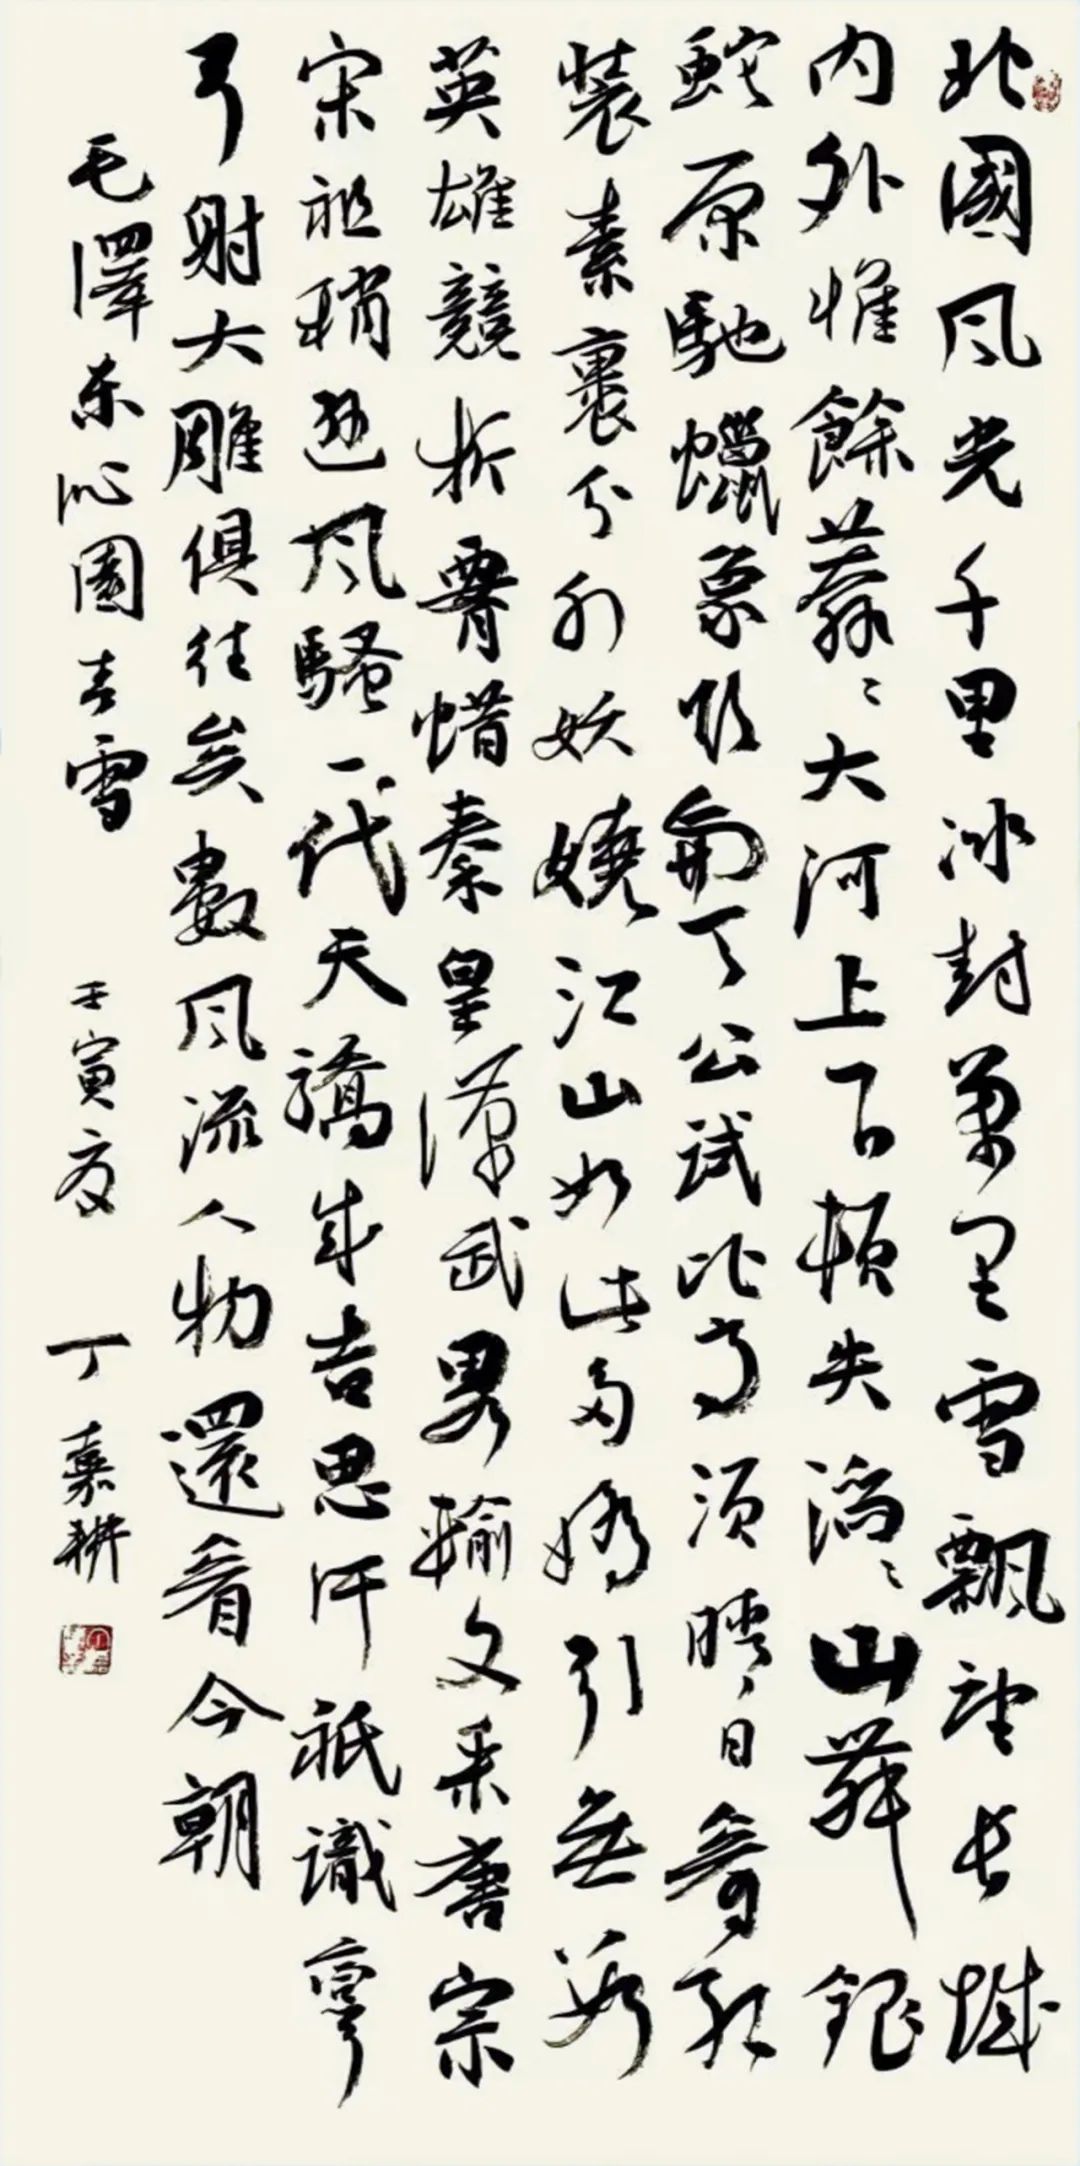 北國風光千里冰封萬里雪飄望長城
内外惟餘莽〻大河上下頓失滔〻山舞銀
蛇原馳蠟象欲與天公試比高須晴日看紅
裝素裹分外妖嬈江山如此多嬌引無數
英雄競折腰惜秦皇漢武略輸文采唐宗
宋祖稍遜風騷一代天驕成吉思汗祇識彎
弓射大雕俱往矣數風流人物還看今朝
毛澤东沁園春雪 壬寅夏 丁嘉耕